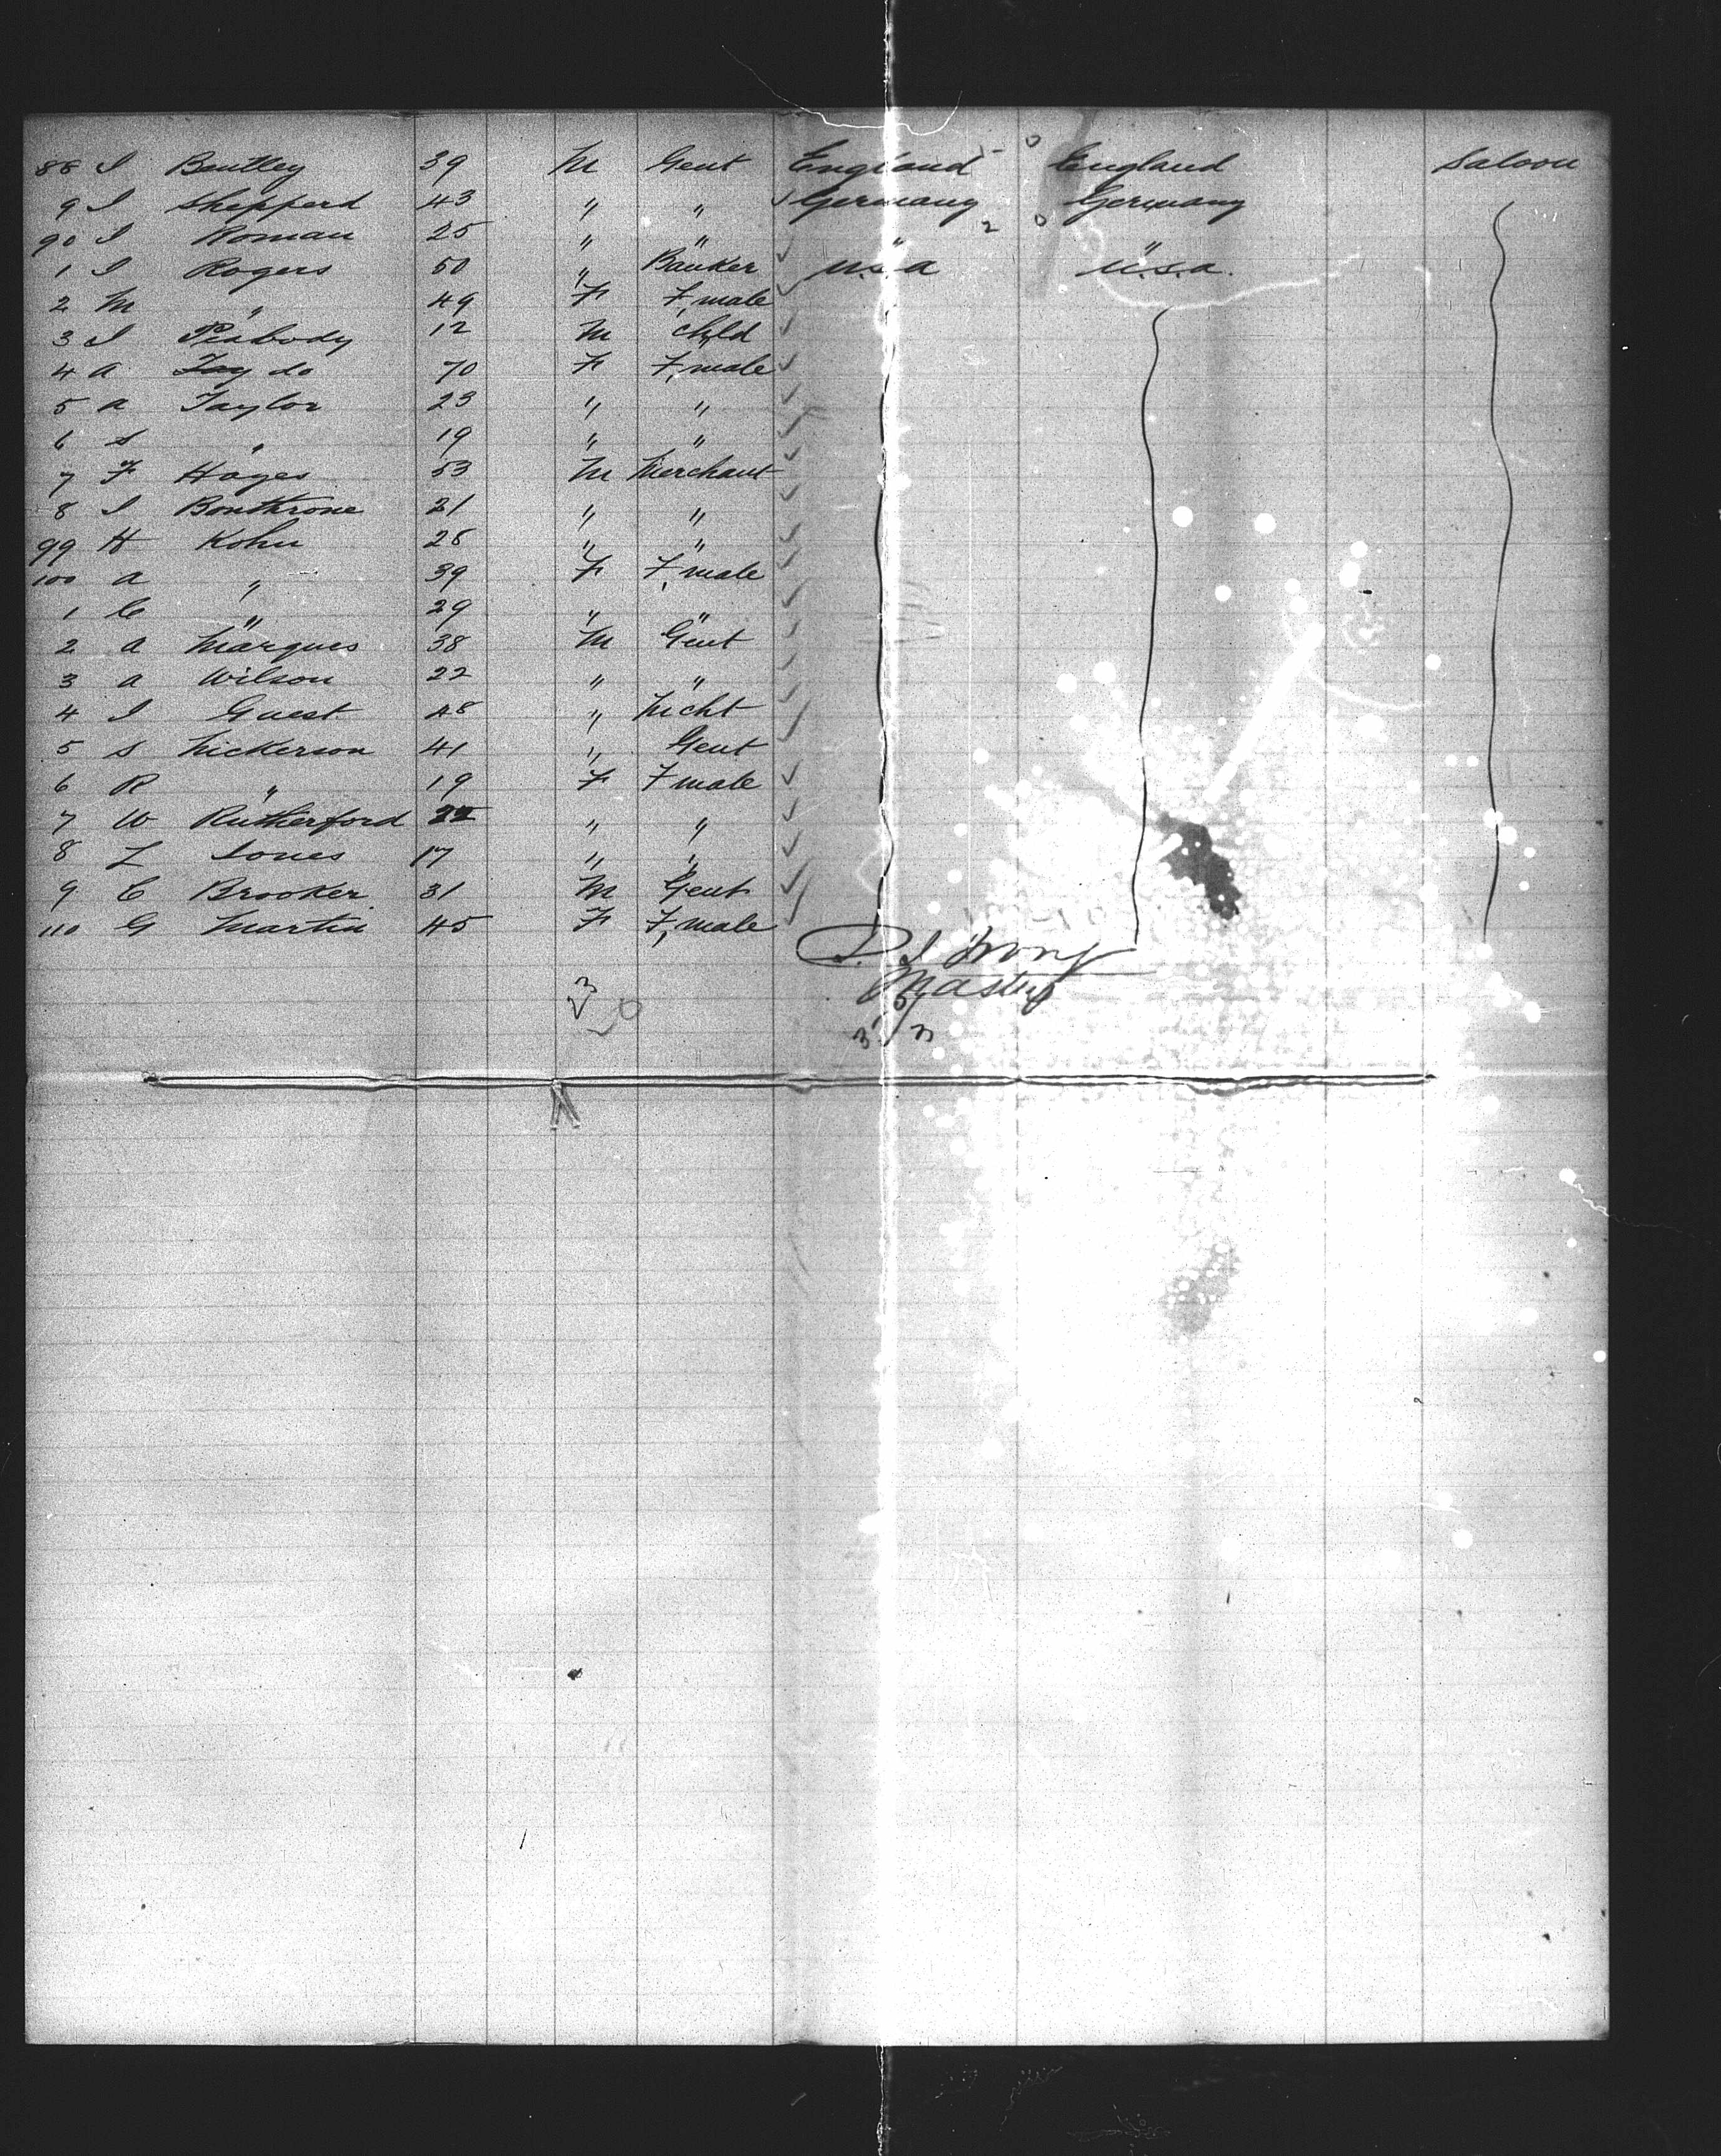 88 I Bentley 39 M Gent England England Saloon
9 I Shepperd 43 " " Germany Germany
90 I Roman 25 " " " "
1 I Rogers 50 " Banker U.S.A U.S.A.
2 M " 49 F Female
3 I Peabody 12 M Child
4 A do 70 F Female
5 A Taylor 23 " "
6 S " 19 " "
7 F Hayes 53 M Merchant
8 I Bonthrone 21 " "
99 H Kohn 28 " "
100 A " 39 F Female
1 C " 29 " "
2 A Marques 38 M Gent
3 A Wilson 22 " "
4 I Guest 48 " Mcht
5 S Nickerson 41 " Gent
6 R " 19 F Female
7 W Rutherford 22 " "
8 L Jones 17 " "
9 C Brooker 31 M Gent
110 G Martin 45 F Female
Master